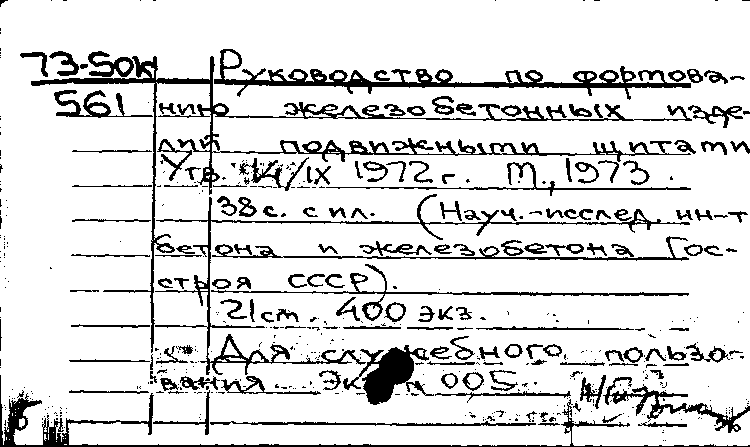 73-50к Руководство по фортова-
561 нию железобетонных изде-
лий подвижными щитами
Утв. 14/IX 1972 г. М., 1973.
38 с. с ил. (Науч.-исслед. ин-т
бетона и железобетона Гос-
строя СССР).
21 cm. 400 экз.
Для служебного пользо-
вания. Экз. N 005.